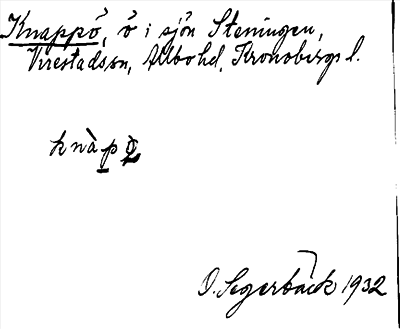 Knappö, ö i sjön Steningen,
Virestads sn, Allbo hd, Kronobergs l.
knàpö̀
O. Segerbäck 1932